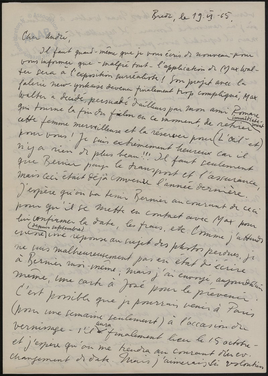 Breda, le 19 VII 65.
Cher André,
Il faut quand-même que je vous écrive de nouveau pour
vous informer que - malgré tout - l'application de Max Wal-
ter sera à l'exposition surréaliste! Son projet avec la
galerie new yorkaise devenu finalement trop compliqué, Max
vient a décidé, persuadé d'ailleurs par mon ami
qui tourne la
cette femme merveilleuse et la réserver pour (L'œil etc)
pour vous! Je suis extrêmement heureux car il
n'y a rien de plus beau!!! Il faut seulement
que Bernier paye le transport et l'assurance,
mais ceci était déjà convenu l'année dernière.
J'espère qu'on tiens Bernier au courant de ceci
pour qu'il se mette en contact avec Max pour
lui confirmer la date, les frais, etc. Comme j'attends
réponse au sujet des photos perdues, je
ne suis malheureusement pas en état de écrire
à Bernier moi-même, mais j'ai envoyé aujourd'hui
même, une carte à José pour le prévenir.
C'est possible que je pourrai venir à Paris
(pour une semaine seulement) à l'occasion du
vernissage - s'il a finalement lieu le 15 octobre -
et j'espère qu'on me tiendra au courant d'un
changement de date. Mais j'aimerais le